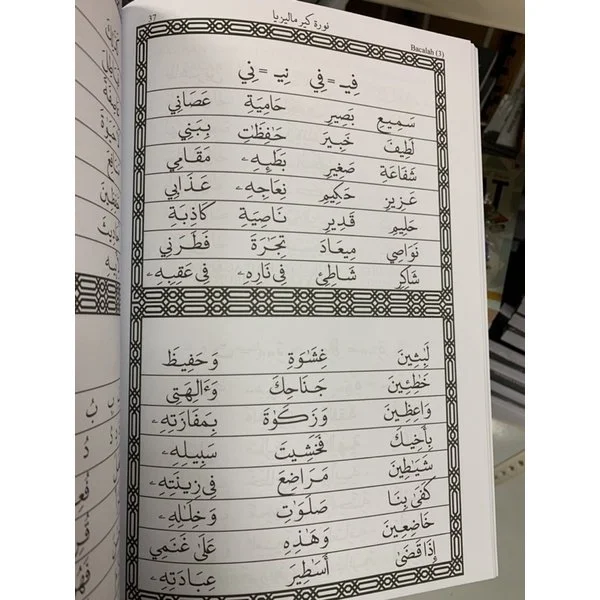 37 نورة كير ماليزيا Bacalah (3)
فِيـ = فِي نِيـ = نِي
سَمِيعِ بَصِيرِ حَامِيَةِ عَصَانِي
لَطِيفَ خَبِيرَ حَٰفِظَٰتِ بِبَنِي
شَفَاعَةِ صَغِيرِ بَطَٰنِهِۦ مَقَامِي
عَزِيزِ حَكِيمِ نِعَاجِهِۦ عَذَابِي
حَلِيمِ قَدِيرِ نَاصِيَةِ كَاذِبَةِ
نَوَاصِي مِيعَادَ تِجَٰرَةَ فَطَرَنِي
شَاكِرِ شَاطِئِ فِي نَارِهِۦ فِي عَقِبِهِۦ
لَٰبِثِينَ غِشَٰوَةِ وَحَفِيظَ
خَٰطِئِينَ جَنَاحِكَ وَءَالِهَتِي
وَاعِظِينَ وَزَكَوٰةَ بِمَفَازَتِهِۦ
بِأَخِيكَ فَخَشِيتَ سَبِيلِهِۦ
شَيَٰطِينَ مَرَاضِعَ فِي زِينَتِهِۦ
كَفَىٰ بِنَا صَلَوَٰتِ وَخِلَٰلِهِۦ
خَاضِعِينَ وَهَٰذِهِ عَلَىٰ غَنَمِي
إِذَا قَضَىٰ أَسَٰطِيرَ عِبَادَتِهِۦ